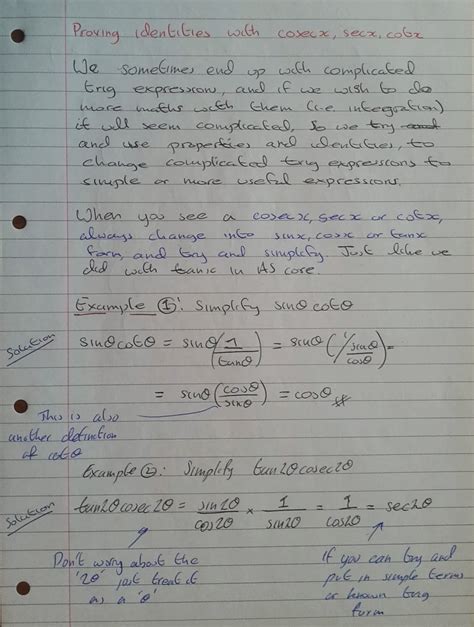 Proving identities with cosecx, secx, cotx
We sometimes end up with complicated
trig expression, and if we wish to do
more maths with them (i.e integration)
it will seem complicated, So we try
and use properties and identities, to
change complicated trig expressions to
simple or more useful expressions.
When you see a cosecx, secx or cotx,
always change into sinx, cosx or tanx
form, and try and simplify. Just like we
did with tanx in AS core.
Example ①: Simplify sinθcotθ
Solution
sinθcotθ = sinθ(1/tanθ) = sinθ(1/(sinθ/cosθ)) =
= sinθ(cosθ/sinθ) = cosθ
This is also
another definition
of cotθ
Example ②: Simplify tan2θcosec2θ
Solution
tan2θcosec2θ = sin2θ/cos2θ × 1/sin2θ = 1/cos2θ = sec2θ
Don't worry about the
'2θ' just treat it
as a 'θ'
if you can try and
put in simple terms
or known trig
form